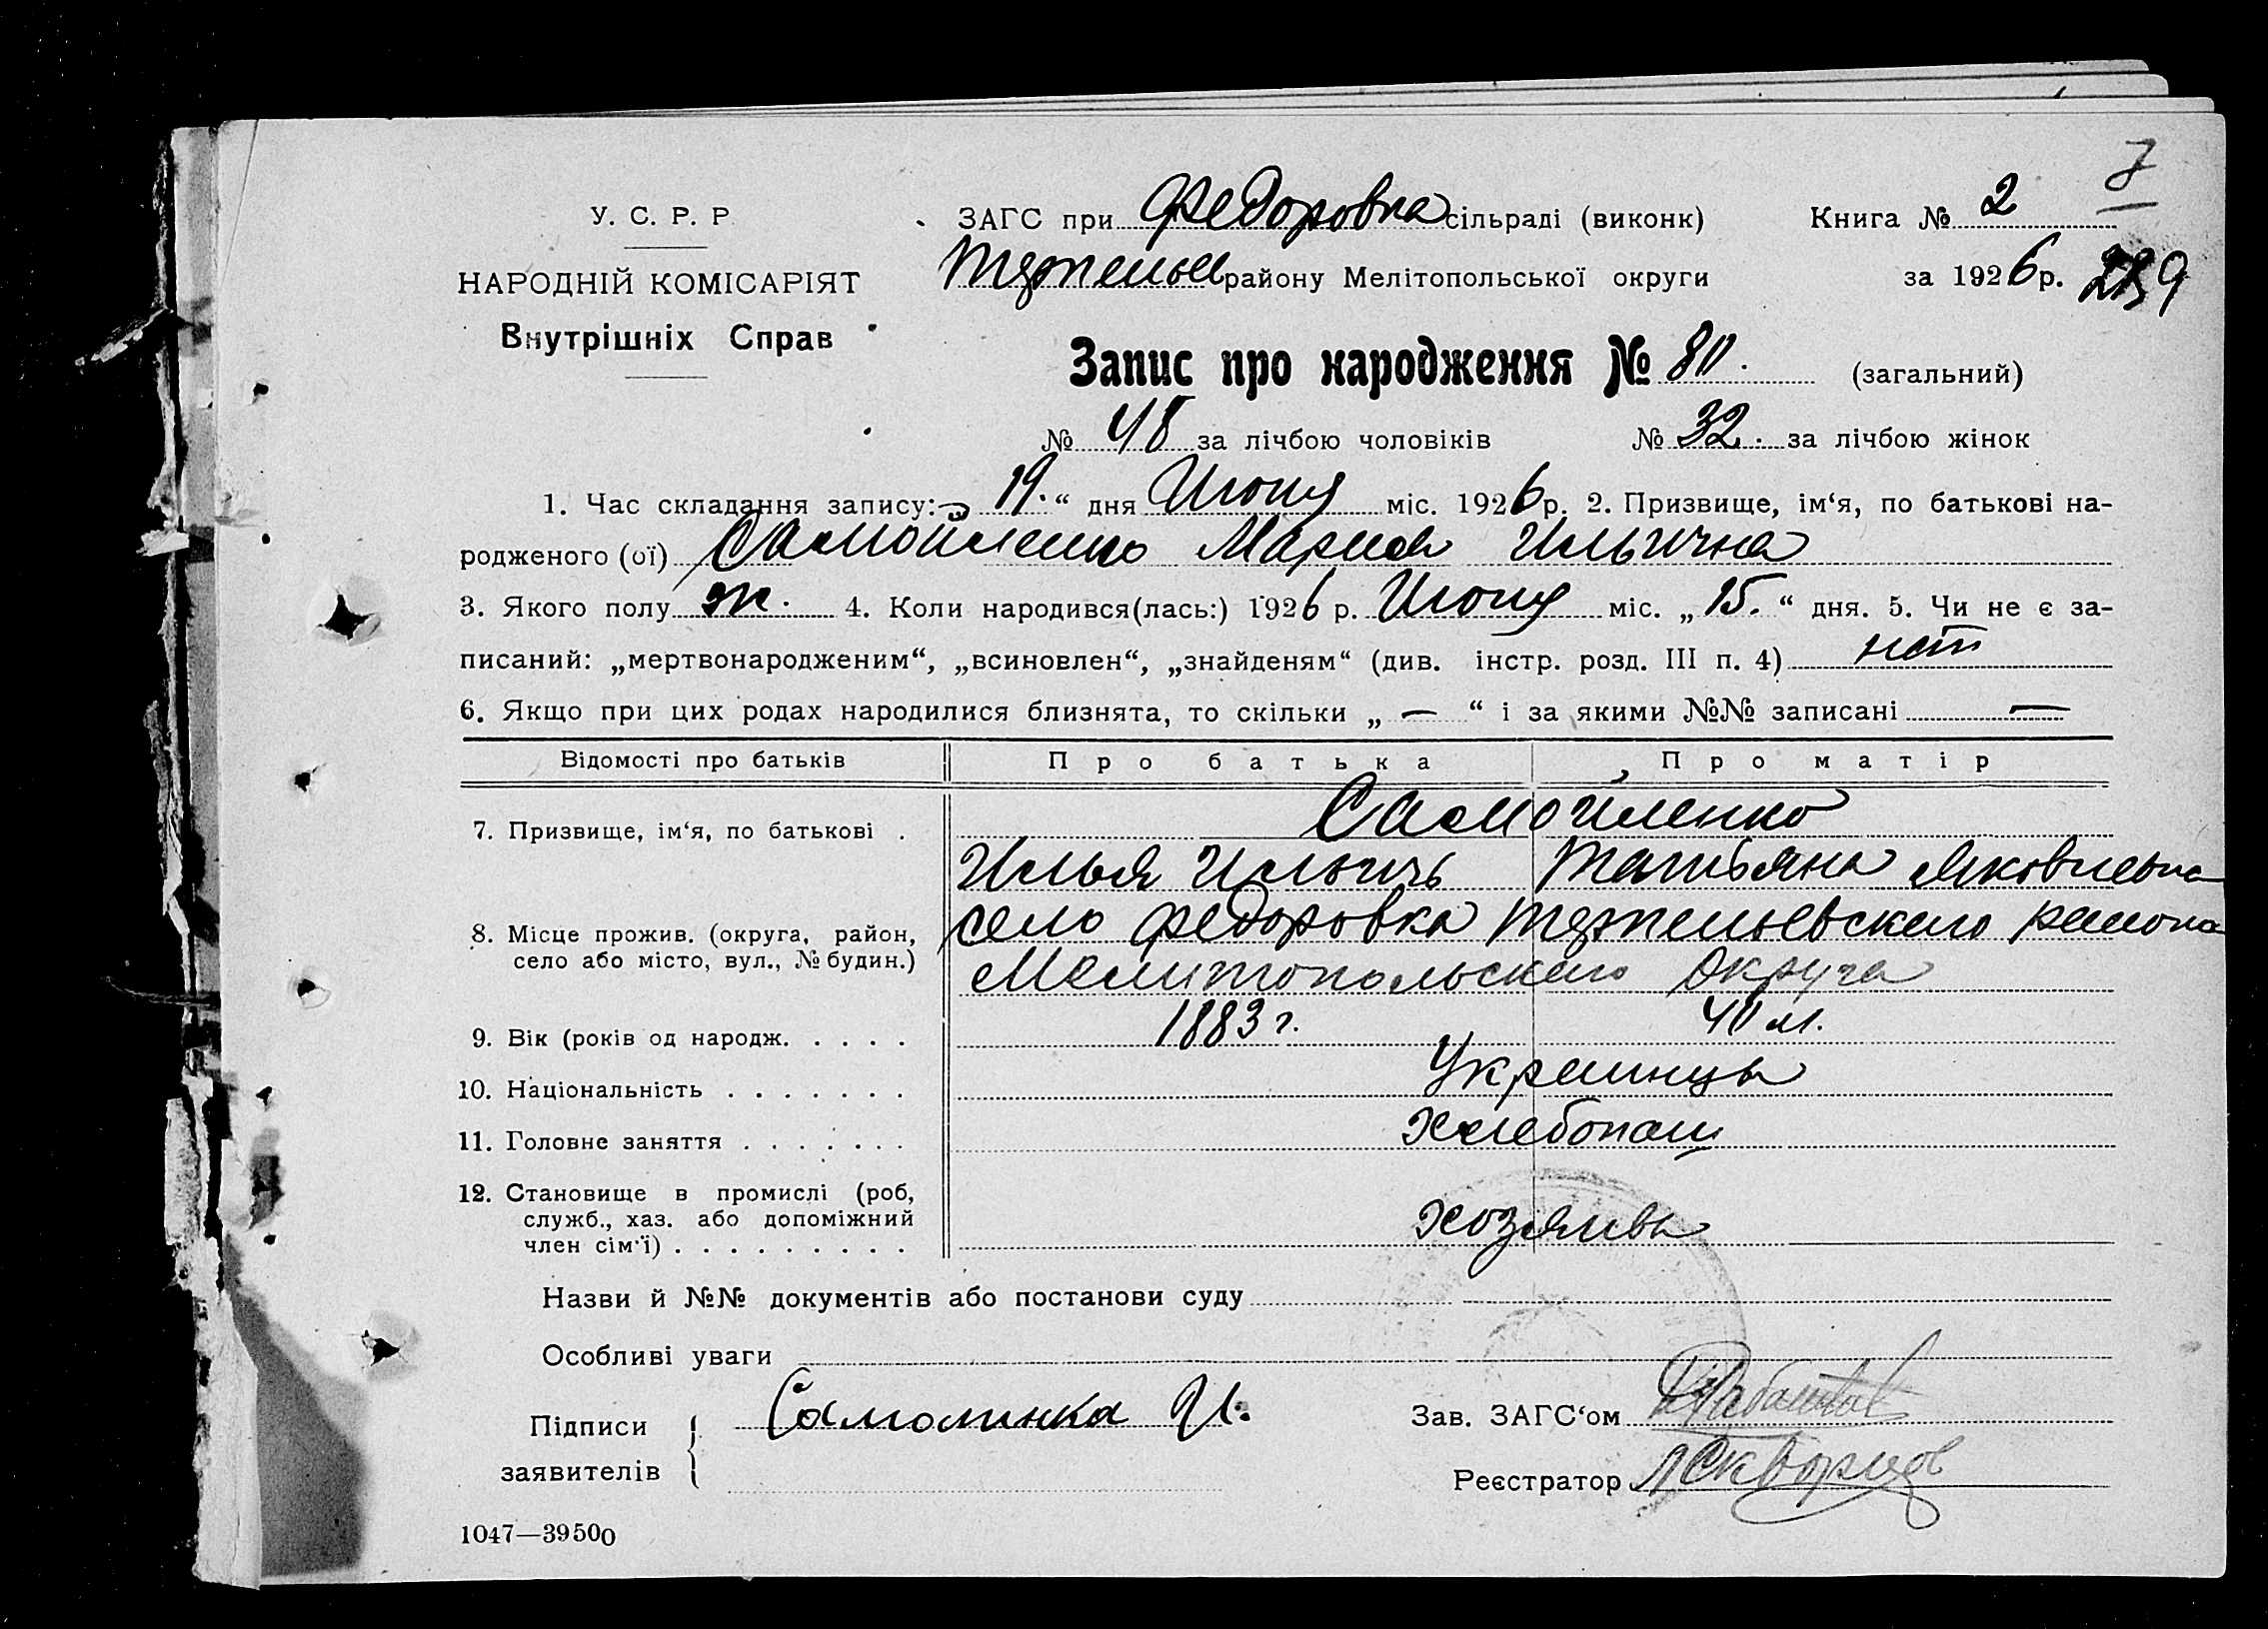 7
У. С. Р. Р
ЗАГС при Федоровка сільраді (виконк) Книга № 2
НАРОДНІЙ КОМІСАРІЯТ
району Мелітопольської округи за 1926 р.
Внутрішніх Справ
Запис про народження № 80. (загальний)
№ 48 за лічбою чоловіків № 32. за лічбою жінок
1. Час складання запису: „ 19. “ дня Июня міс. 1926 р. 2. Призвище, ім‘я, по батькові на-
родженого (ої) Самойленко Мария Ильична
3. Якого полу ж. 4. Коли народився(лась:) 1926 р. Июня міс. „ 15. “ дня. 5. Чи не є за-
писаний: „мертвонародженим“, „всиновлен“, „знайденям“ (див. інстр. розд. III п. 4) нет
6. Якщо при цих родах народилися близнята, то скільки „ — “ і за якими №№ записані —
Відомості про батьків Про батька Про матір
7. Призвище, ім‘я, по батькові . Самойленко
Илья Ильичь Татьяна Яковлевна
8. Місце прожив. (округа, район, село Федоровка района
село або місто, вул., № будин.) Мелитопольского Округа
9. Вік (років од народж. . . . . 1883 г. 40 л.
10. Національність . . . . . . . Украинцы
11. Головне заняття . . . . . . . Хлебопаш
12. Становище в промислі (роб,
служб., хаз. або допоміжний Хозяева
член сім‘ї) . . . . . . . . .
Назви й №№ документів або постанови суду
Особливі уваги
Підписи Самолинка И. Зав. ЗАГС‘ом
заявителів Реєстратор Скворцов
1047—39500